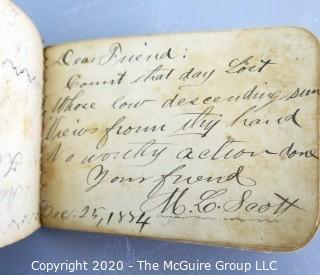 Dear Friend:
Count that day Lost
Whose low descending sun
Views from thy hand
No worthy action done
Your friend
M. C. Scott
Dec. 25, 1884
Copyright © 2020 - The McGuire Group LLC